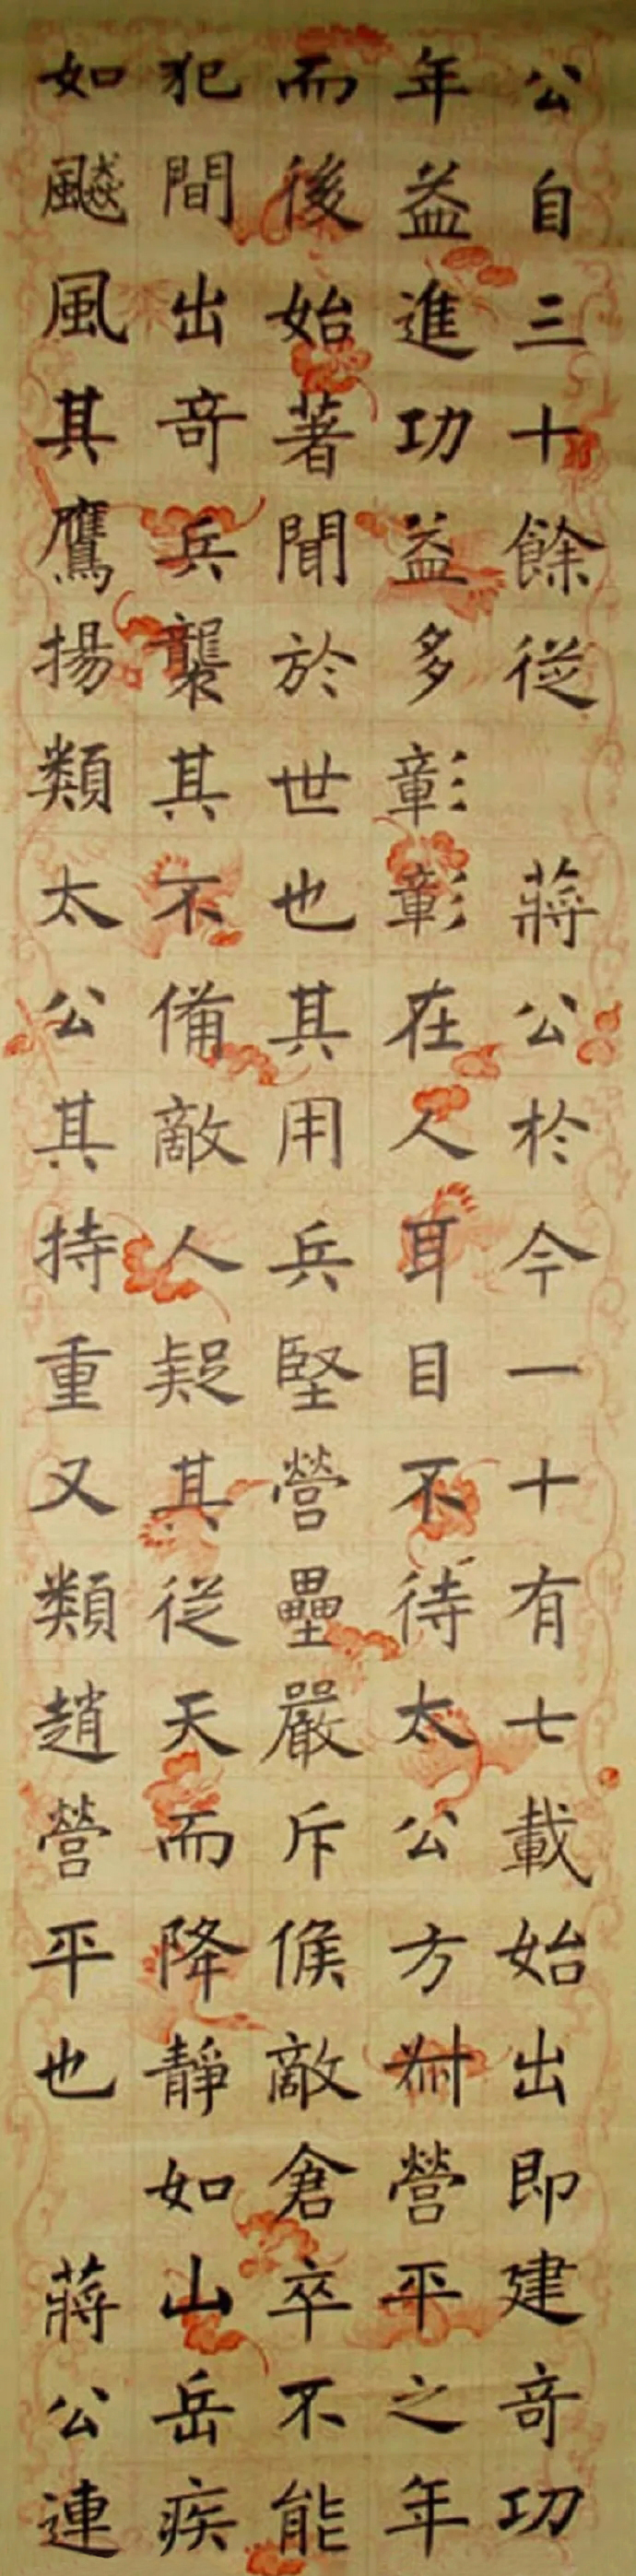 公自三十餘從 蔣公於今一十有七載始出即建奇功
年益進功益多彰彰在人耳目不待太公方尉營平之年
而後始著聞於世也其用兵堅營壘嚴斥候敵倉卒不能
犯間出奇兵襲其不備敵人疑其從天而降靜如山岳疾
如飈風其鷹揚類太公其持重又類趙營平也 蔣公連